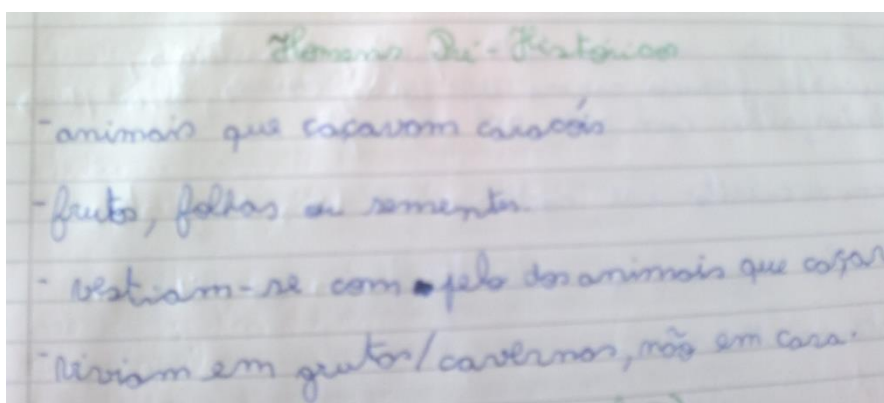 Homens Pré-Históricos
- animais que caçavam caracóis
- frutos, folhas ou sementes.
- vestiam-se com pelo dos animais que caçar
- viviam em grutas/cavernas, não em casa.